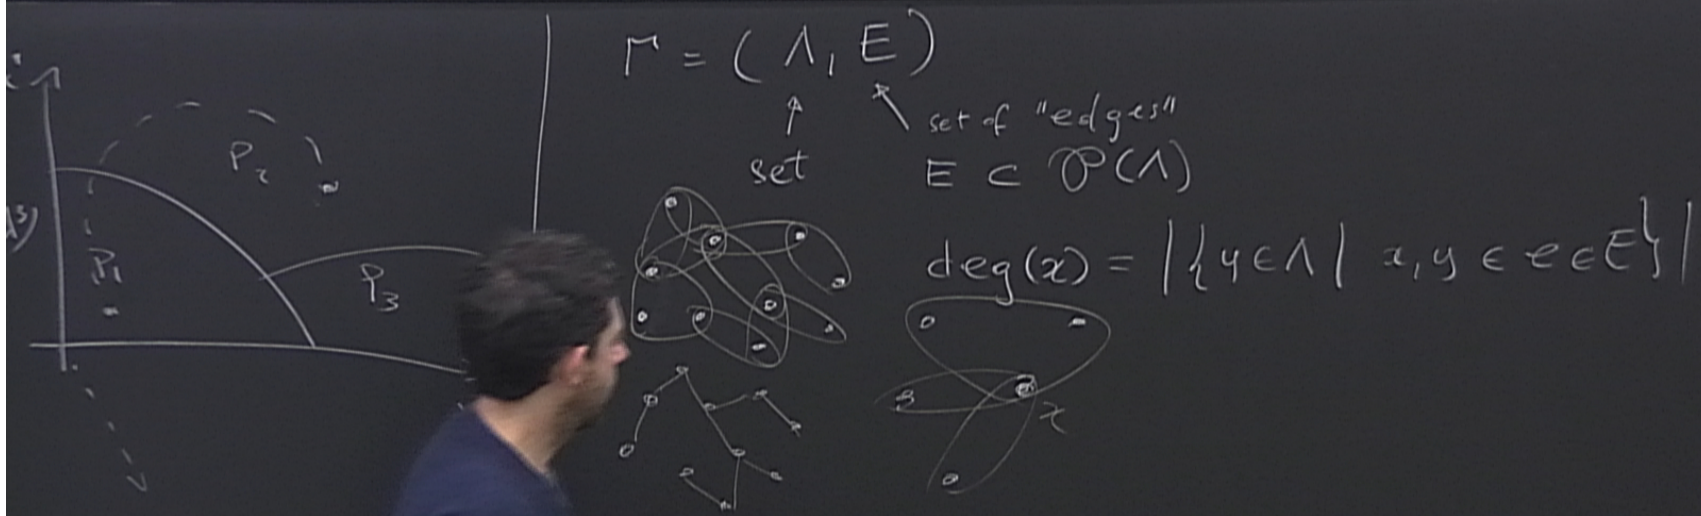 P₂
P₁
P₃
Γ = (Λ, E)
set of "edges"
set
E ⊂ 𝒫(Λ)
deg(x) = |{y ∈ Λ | x, y ∈ e ∈ E}|
x